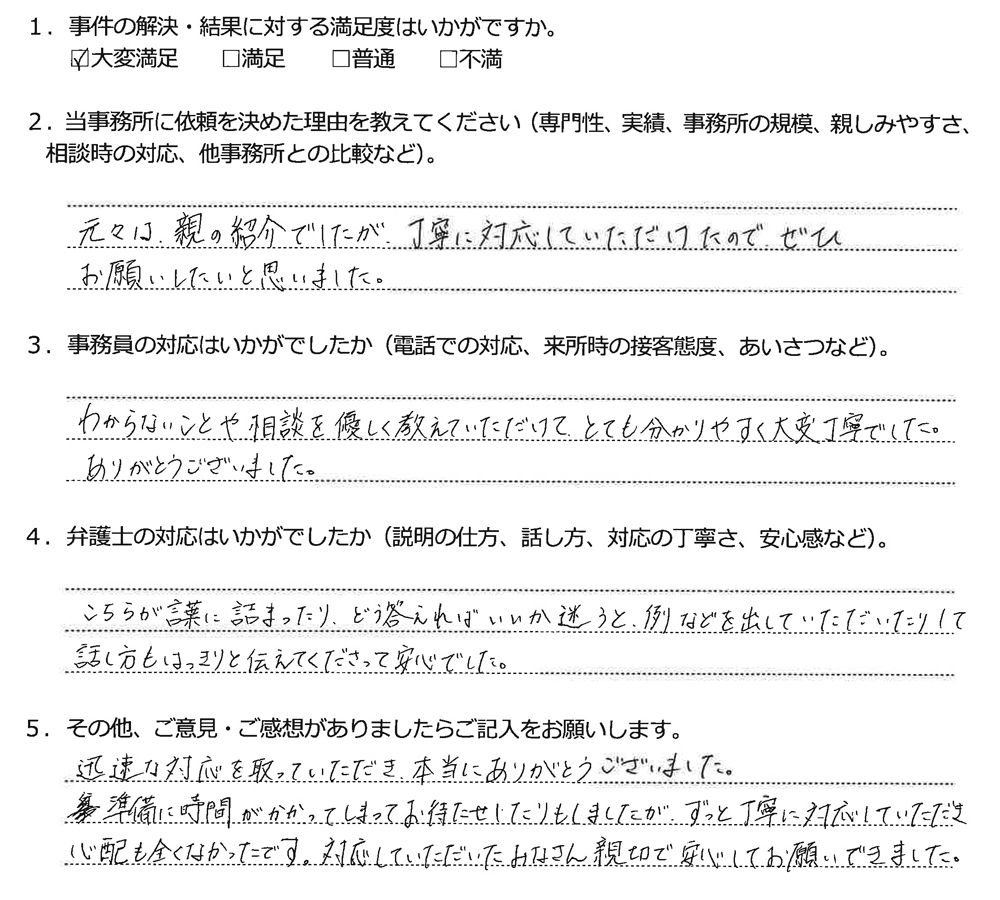 1．事件の解決・結果に対する満足度はいかがですか。
☑大変満足　□満足　□普通　□不満
2．当事務所に依頼を決めた理由を教えてください（専門性、実績、事務所の規模、親しみやすさ、
相談時の対応、他事務所との比較など）。
元々は、親の紹介でしたが、丁寧に対応していただけたので、ぜひ
お願いしたいと思いました。
3．事務員の対応はいかがでしたか（電話での対応、来所時の接客態度、あいさつなど）。
わからないことや相談を優しく教えていただけて、とても分かりやすく大変丁寧でした。
ありがとうございました。
4．弁護士の対応はいかがでしたか（説明の仕方、話し方、対応の丁寧さ、安心感など）。
こちらが言葉に詰まったり、どう答えればいいか迷うと、例などを出していただいたりして
話し方もはっきりと伝えてくださって安心でした。
5．その他、ご意見・ご感想がありましたらご記入をお願いします。
迅速な対応を取っていただき、本当にありがとうございました。
準備に時間がかかってしまってお待たせしたりもしましたが、ずっと丁寧に対応していただき
心配も全くなかったです。対応していただいたみなさん親切で安心してお願いできました。